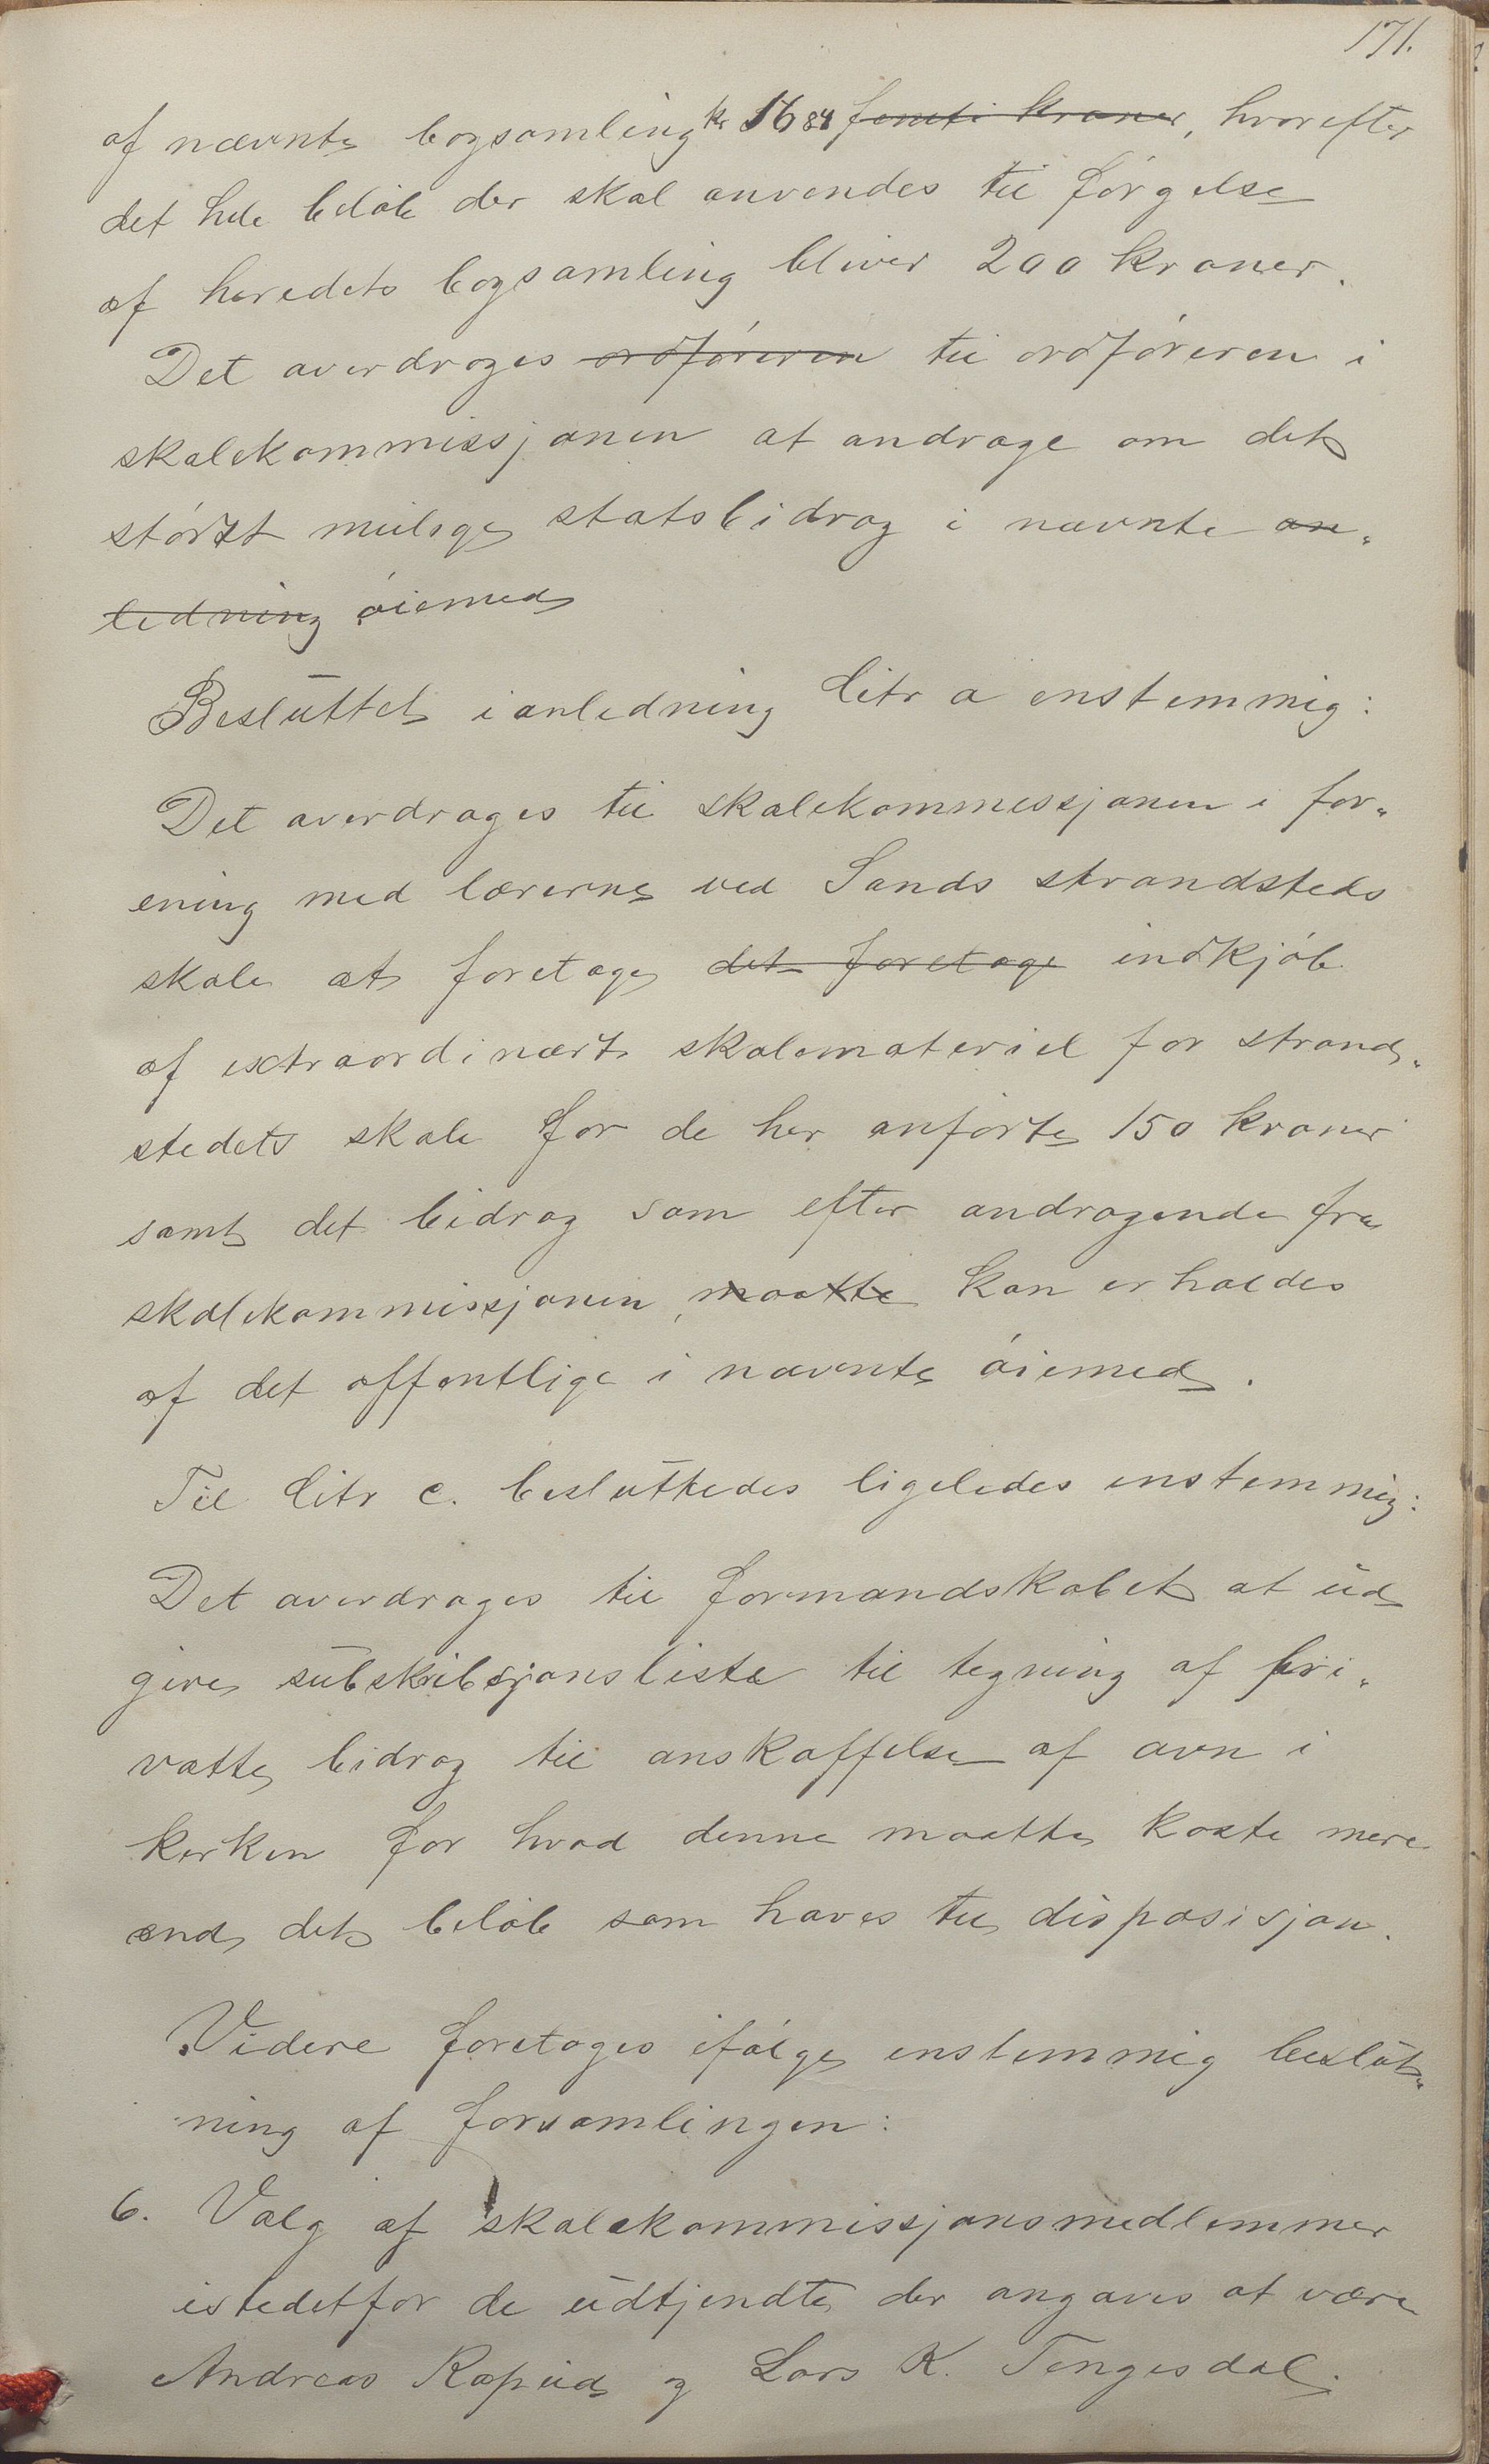 171.
af nævnte bogsamling kr 1684 femti kroner, hvorefter
det hele beløb der skal anvendes til førgelse
af heredets bogsamling bliver 200 kroner.
Det averdroges ordføreren til ordføreren i
skolekommissjonen at andrage om det
størst mulige statsbidrag i nævnte an-
ledning øiemed
Besluttet ianledning litr a enstemmig:
Det overdroges til skolekommissjonen i for-
ening med lærerne ved Sands strandsteds
skole at foretage det foretage indkjøb
af extraordinært skolemateriel for strand-
stedets skole for de her anførte 150 kroner
samt det bidrag som efter andragende fra
skolekommissjonen, maatte kan erholdes
af det offentlige i nævnte øiemed.
Til litr c. besluttedes ligeledes enstemmig:
Det overdroges til formandskabet at ud
give subskribsjonsliste til tegning af pri-
vatte bidrag til anskaffelse af ovn i
kerken for hvad denne maatte koste mere
end det beløb som haves til disposisjon.
Videre foretoges ifølge enstemmig beslut-
ning af forsamlingen:
6. Valg af skolekommissjonsmedlemmer
istedetfor de udtjendte der angaves at være
Andreas Rapud og Lars K. Tengesdal.